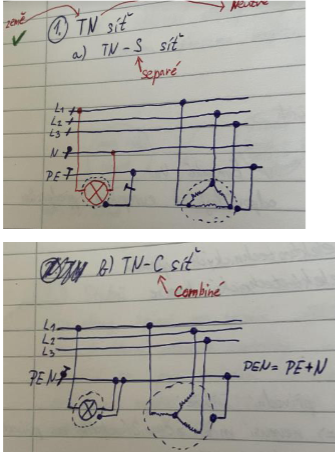 země
Neutre
1. TN síť
a) TN-S síť
séparé
L1
L2
L3
N
PE
b) TN-C síť
Combiné
L1
L2
L3
PEN
PEN = PE+N